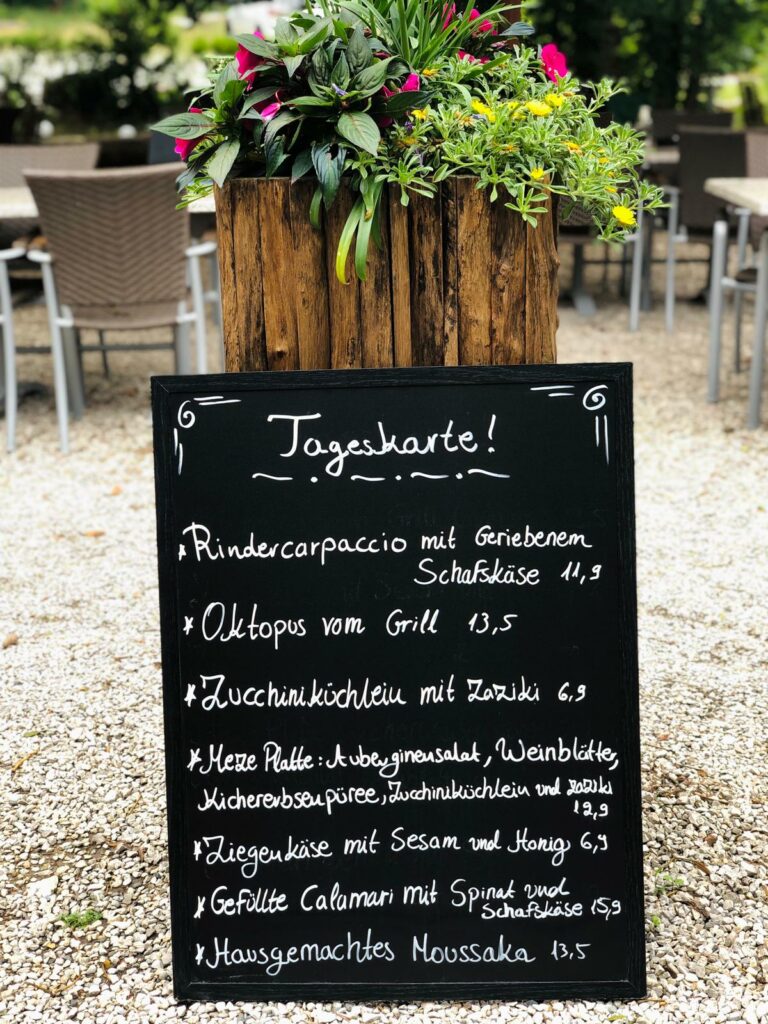 Tageskarte!
* Rindercarpaccio mit Geriebenem
Schafskäse 11,9
* Oktopus vom Grill 13,5
* Zucchiniküchlein mit Zaziki 6,9
* Meze Platte: Auberginensalat, Weinblätter,
Kichererbsenpüree, Zucchiniküchlein und Zaziki
12,9
* Ziegenkäse mit Sesam und Honig 6,9
* Gefüllte Calamari mit Spinat und
Schafskäse 15,9
* Hausgemachtes Moussaka 13,5